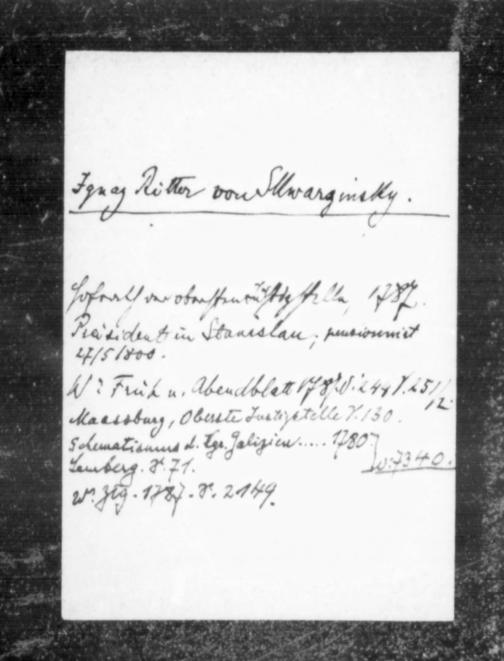 Ignaz Ritter von Ellwarginsky.
Hofrath der obersten Justizstelle, 1787.
Präsident in Stanislau, pensionirt
27/5/800.
W: Früh u. Abendblatt 1787. S. 244, S. 25/12
Maassburg, Oberste Justizstelle S. 130.
Schematismus d. Kgr. Galizien .... 1780
Lemberg. S. 71. W: 7340.
Wr. Ztg. 1787. S. 2149.